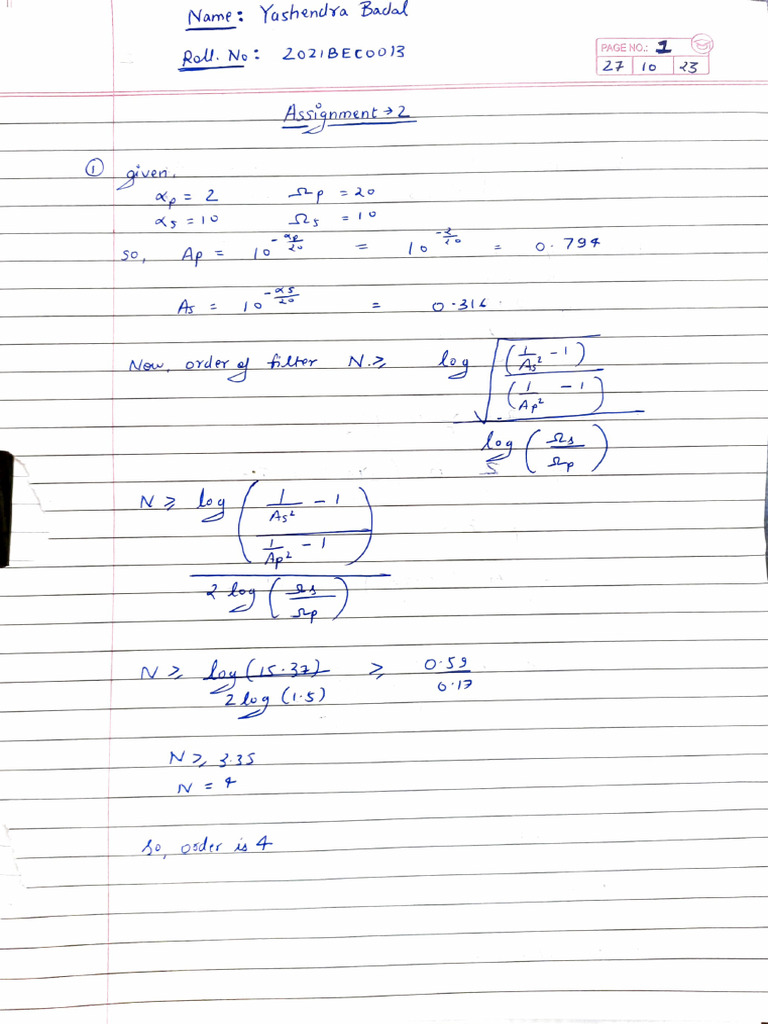 Name: Yashendra Badal
Roll. No: 2021BEC0013
PAGE NO.: 1
27 10 23
Assignment → 2
① given,
αp = 2 Ωp = 20
αs = 10 Ωs = 10
so, Ap = 10^(-αp/20) = 10^(-2/20) = 0.794
As = 10^(-αs/20) = 0.316
Now, order of filter N ≥ log √((1/As² - 1)/(1/Ap² - 1)) / log (Ωs/Ωp)
N ≥ log ((1/As² - 1)/(1/Ap² - 1)) / 2 log (Ωs/Ωp)
N ≥ log(15.37) / 2 log (1.5) ≥ 0.59/0.17
N ≥ 3.35
N = 4
so, order is 4